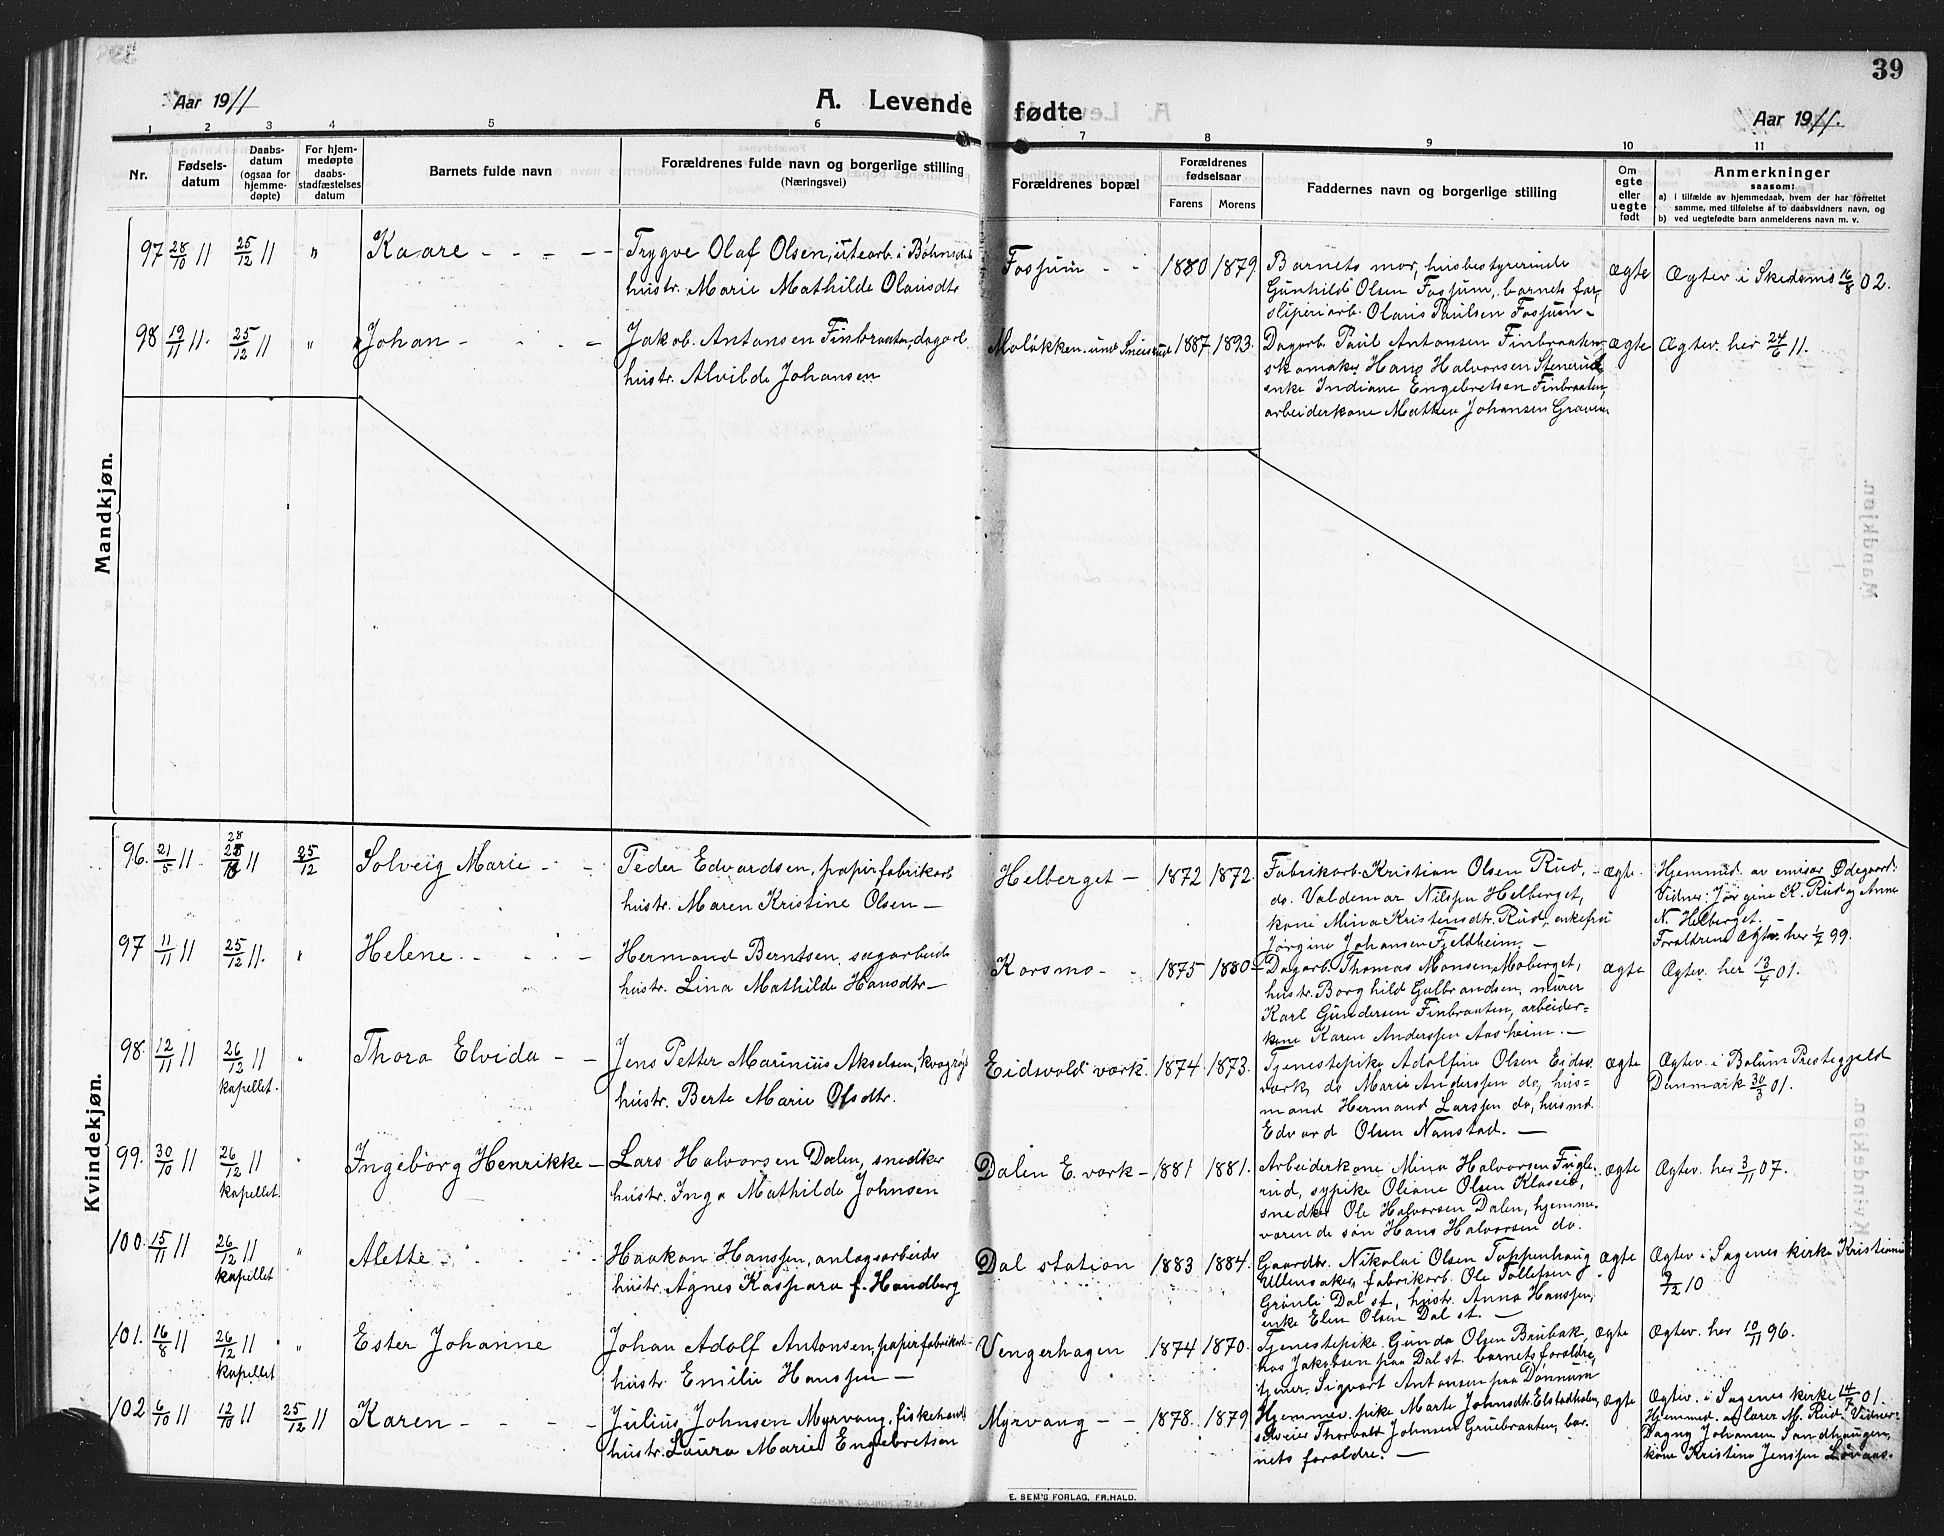 39
Aar 1911
A. Levende fødte
Aar 1911.
1 2 3 4 5 6 7 8 9 10 11
Nr.
Fødsels-
datum
Daabs-
datum
(ogsaa for
hjemme-
døpte)
For hjem-
medøpte
daabs-
stadfæstelses
datum
Barnets fulde navn
Forældrenes fulde navn og borgerlige stilling
(Næringsvei)
Forældrenes bopæl
Forældrenes
fødselsaar
Farens Morens
Faddernes navn og borgerlige stilling
Om
egte
eller
uegte
født
Anmerkninger
saasom:
a) I tilfælde av hjemmedaab, hvem der har forrettet
samme, med tilføielse af to daabsvidners navn, og
b) ved uegtefødte barn anmelderens navn m. v.
Mandkjøn.
97 28/10 11 25/12 11 " Kaare - - - -
Trygve Olaf Olsen,
hustr. Marie Mathilde Olausdtr
Fossum - - 1880 1879.
Barnets mor, husbestyrerinde
Gunhild Olsen Fossum, barnets far,
sliperiarb. Olaus Paulsen Fossum -
ægte
Ægtev. i Skedsmo 16/8 02.
98 19/11 11. 25/12 11 " Johan - - - -
Jakob Antonsen Finbraaten, dagarb.
hustr. Alvilde Johansen
1887 1893.
Dagarb. Paul Antonsen Finbraaten,
skomaker Hans Halvorsen Stenerud,
enke Indiane Engebretsen Finbraaten,
arbeiderkone Mathea Johansen
ægte
Ægtev. her 24/6 11.
Kvindekjøn.
96. 21/5 11. 28 11 25/12 Solveig Marie - -
Peder Edvardsen, papirfabrikarb
hustr. Maren Kristine Olsen -
Helberget - 1872 1872.
Fabrikarb. Kristian Olsen Rud,
do. Valdemar Nilssen Helberget,
kone Mina Kristensdtr. Rud, enkefru
Jørgine Johansen Fjeldheim. -
ægte.
Hjemmed. av emisær Ødegaard.
Vidner: Jørgine K. Rud og Anne
N. Helberget. -
Forældrene Ægtev. her 99.
97 11/11 11 25/12 11. " Helene - - - -
Hermand Berntsen, sagarbeider
hustr. Lina Mathilde Hansdtr -
Korsmo - - 1875 1880 -
Dagarb. Thomas Monsen Moberget,
hustr. Borghild Gulbrandsen, murer
Karl Gundersen Finbraaten, arbeider=
kone Karen Anderssen Aasheim. -
ægte
Ægtev. her 13/4 01.
98. 12/11 11 26/12 11 kapellet. " Thora Elvida - -
Jens Petter Marinius Akselsen,
hustr. Berte Marie Olsdtr.
Eidsvold værk. 1874 1873.
Tjenestepike Adolfine Olsen Eidsv.
værk, do Marie Anderssen do, hus=
mand Hermand Larssen do, husmd.
Edvard Olsen Nanstad. -
ægte
Ægtev. i Bolum Prestegjeld
Danmark 30/3 01.
99. 30/10 11 26/12 11 kapellet. " Ingeborg Henrikke -
Lars Halvorsen Dalen, snedker
hustr. Inga Mathilde Johnsen
Dalen E. værk - 1881 1881.
Arbeiderkone Mina Halvorsen Fugle-
rud, sypike Oliane Olsen
snedker Ole Halvorsen Dalen, hjemme-
værende søn Hans Halvorsen do.
ægte
Ægtev. her 3/11 07.
100. 15/11 11 26/12 11 kapellet " Alette - - - -
Haakon Hanssen, anlægsarbeider
hustr. Agnes Kaspara f. Handberg
Dal station 1883 1884.
Gaardbr. Nikolai Olsen
Ullensaker, fabrikarb. Ole Tollefsen
Grønli Dal st., hustr. Anna Hanssen,
enke Elen Olsen Dal st. -
ægte
Ægtev. i Sagenes kirke Kristiania
9/12 10
101. 16/8 11 26/12 11 kapellet " Ester Johanne
Johan Adolf Antonsen, papirfabrikarb.
hustr. Emilie Hanssen -
Vengerhagen 1874 1870.
Tjenestepike Gunda Olsen Brubak,
hos Jakobsen paa Dal st. barnets forældre,
tjener Sigvart Antonsen paa Dønnum
ægte
Ægtev. her 10/11 96.
102 6/10 11 12/10 11 25/12 11 Karen - - - -
Julius Johnsen Myrvang, fiskehandl.
hustr. Laura Marie Engebretsen
Myrvang - - 1878. 1879
Hjemmev. pike Marte Johnsdtr. Elstadkolen,
selveier Thorvald Johnsen Gruebraaten, bar-
nets forældre. -
ægte
Ægtev. i Sagenes kirke 14/7 01.
Hjemmed. av lærer M. Rud. Vidner:
Dagny Johansen Sandhaugen,
kone Kristine Jenssen
E. SEM'S FORLAG, FR.HALD.